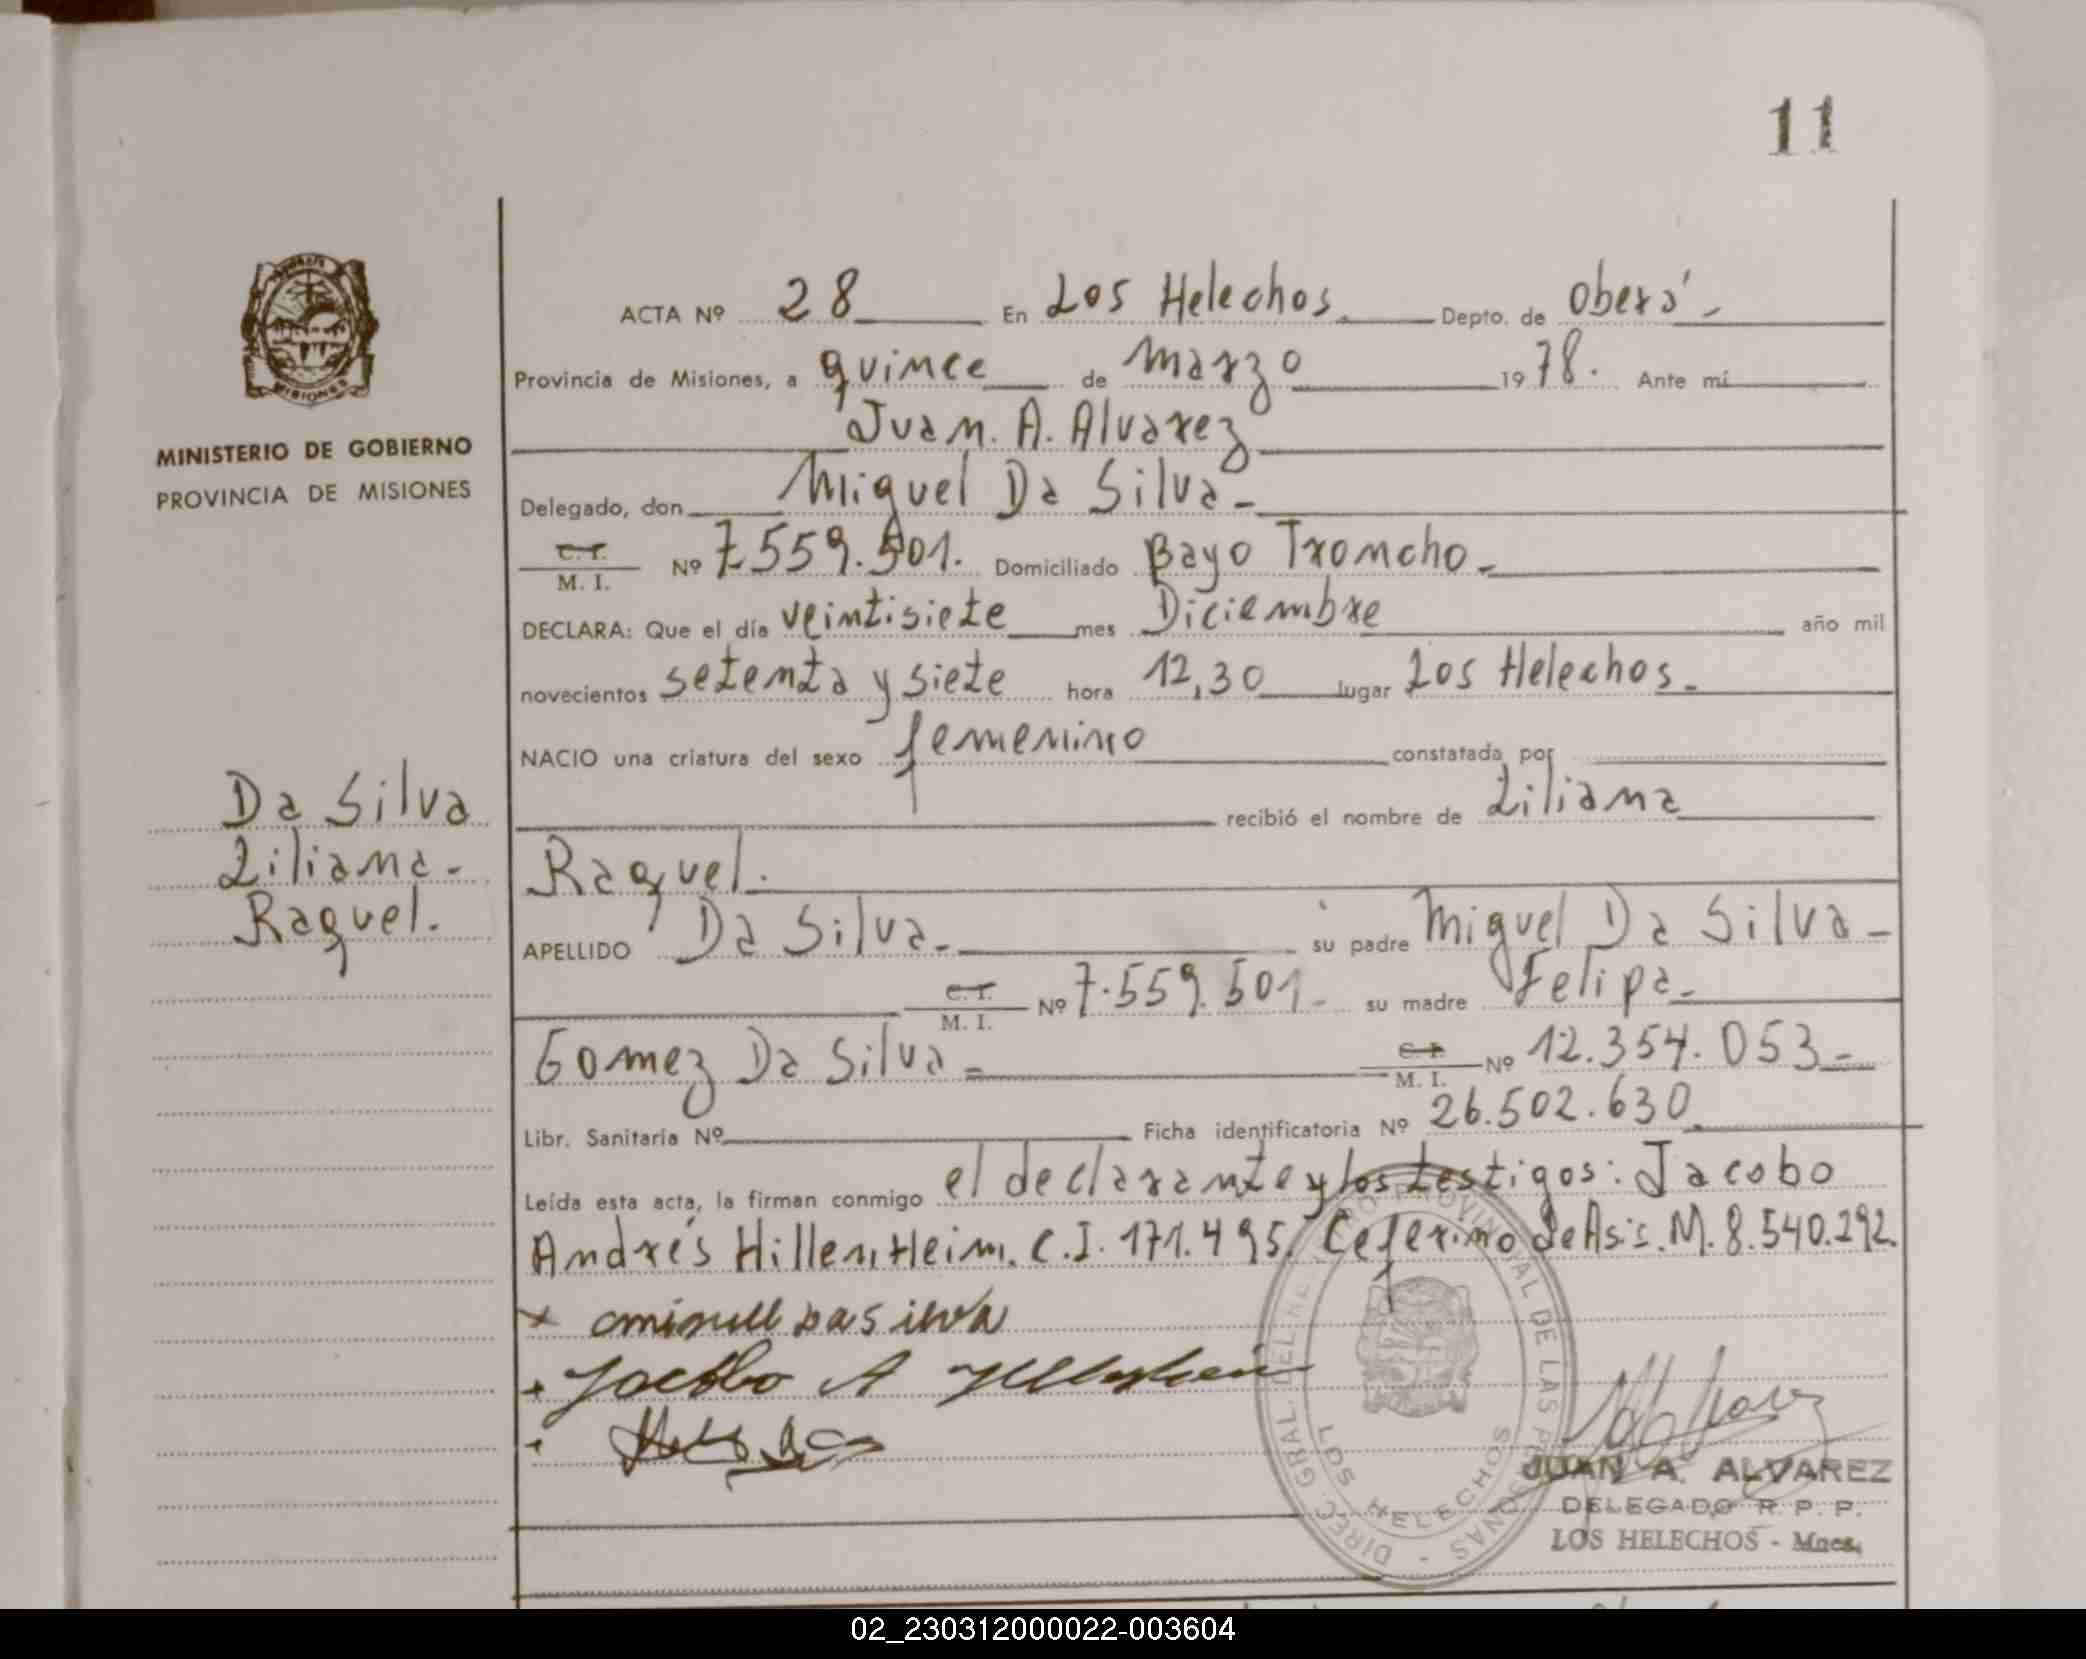 11
MINISTERIO DE GOBIERNO
PROVINCIA DE MISIONES
ACTA Nº 28 En Los Helechos. Depto. de Oberá -
Provincia de Misiones, a quince de Marzo 1978. Ante mí
Juan. A. Alvarez
Delegado, don Miguel Da Silva -
C. I. M. I. Nº 7.559.501. Domiciliado Bayo Troncho -
DECLARA: Que el día veintisiete mes Diciembre año mil
novecientos setenta y siete hora 12,30 lugar Los Helechos. -
NACIO una criatura del sexo femenino constatada por
recibió el nombre de Liliana
Raquel.
APELLIDO Da Silva - su padre Miguel Da Silva -
C. I. M. I. Nº 7.559.501 - su madre Felipa -
Gomez Da Silva = C. I. M. I. Nº 12.354.053 -
Libr. Sanitaria Nº Ficha identificatoria Nº 26.502.630
Leída esta acta, la firman conmigo el declarante y los testigos: Jacobo
Andrés Hillen,Heim. C.I. 171.495. Ceferino de Asis. M. 8.540.292.
Da Silva
Liliana -
Raquel.
Jacobo A
DIREC. GRAL. DEL REGISTRO PROVINCIAL DE LAS PERSONAS -
LOS HELECHOS
JUAN A. ALVAREZ
DELEGADO R. P. P.
LOS HELECHOS - Mnes.
02_230312000022-003604